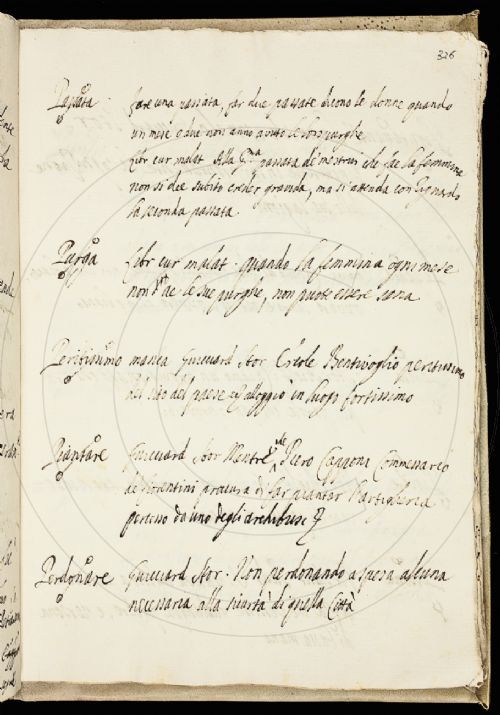 326
Passata fare una passata, far due passate dicono le donne quando
un mese o due non anno avuto le lor purghe
libr cur malat. Alla pa passata di mestrui che fae la femmina
non si dee subito creder gravida, ma si attenda con
la seconda passata.
Purga libr cur malat. quando la femmina ogni mese
non ae le sue purghe, non puote essere sana
Peritissimo manca Guicciard Stor Ercole Bentivoglio peritissimo
nel sito del paese alloggiò in luogo fortissimo
Piantare Guicciard Stor Mentre che Piero Capponi Commessario
de fiorentini procura di far piantar l'artiglieria
percosso da uno degli archibusi
Perdonare Guicciard Stor. Non perdonando a spesa alcuna
necessaria alla sicurtà di quella Città